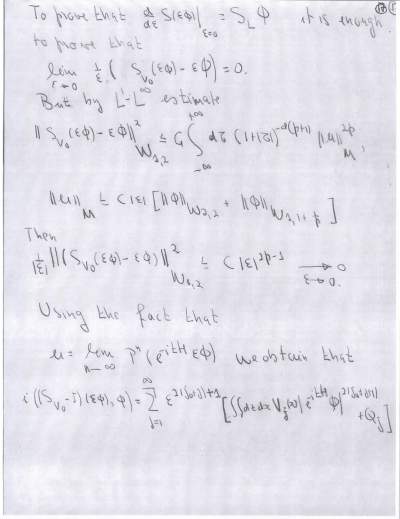 To prove that d/dε S(εφ)|_{ε=0} = S_L φ it is enough
to prove that
lim_{ε→0} 1/ε ( S_{V_0}(εφ) - εφ) = 0.
But by L^1-L^∞ estimate
‖ S_{V_0}(εφ) - εφ‖²_{W_{2,2}} ≤ C ∫_{-∞}^{+∞} dτ (1+|τ|)^{-d(p+1)} ‖u‖^{2p}_M,
‖u‖_M ≤ C|ε| [‖φ‖_{W_{2,2}} + ‖φ‖_{W_{2,1+1/p}}]
Then
1/|ε| ‖(S_{V_0}(εφ) - εφ)‖²_{W_{2,2}} ≤ C|ε|^{2p-1} → 0
ε→0.
Using the fact that
u = lim_{n→∞} P^n (e^{-itH} εφ) we obtain that
i((S_{V_0}-I)(εφ), φ) = Σ_{j=1}^{∞} ε^{2(j_0+j)+1} [∫∫ dt dx V_j(x) |e^{-itH} φ|^{2(j_0+j+1)}
+ Q_j]